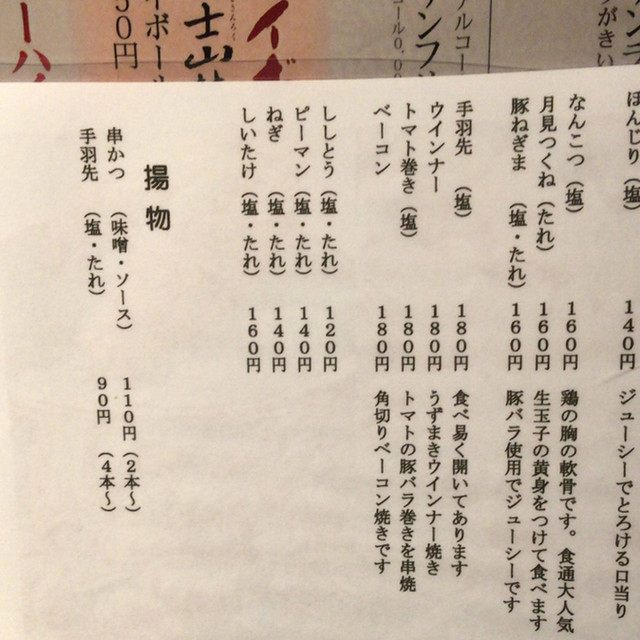 ンフ
コール0.00
イボール
50円
ーハイ
ぼんじり（塩） 140円 ジューシーでとろける口当り
なんこつ（塩） 160円 鶏の胸の軟骨です。食通大人気
月見つくね（たれ） 160円 生玉子の黄身をつけて食べます
豚ねぎま（塩・たれ） 160円 豚バラ使用でジューシーです
手羽先（塩） 180円 食べ易く開いてあります
ウインナー 180円 うずまきウインナー焼き
トマト巻き（塩） 180円 トマトの豚バラ巻きを串焼
ベーコン 180円 角切りベーコン焼きです
ししとう（塩・たれ） 120円
ピーマン（塩・たれ） 140円
ねぎ（塩・たれ） 140円
しいたけ（塩・たれ） 160円
揚物
串かつ（味噌・ソース） 110円（2本〜）
手羽先（塩・たれ） 90円（4本〜）